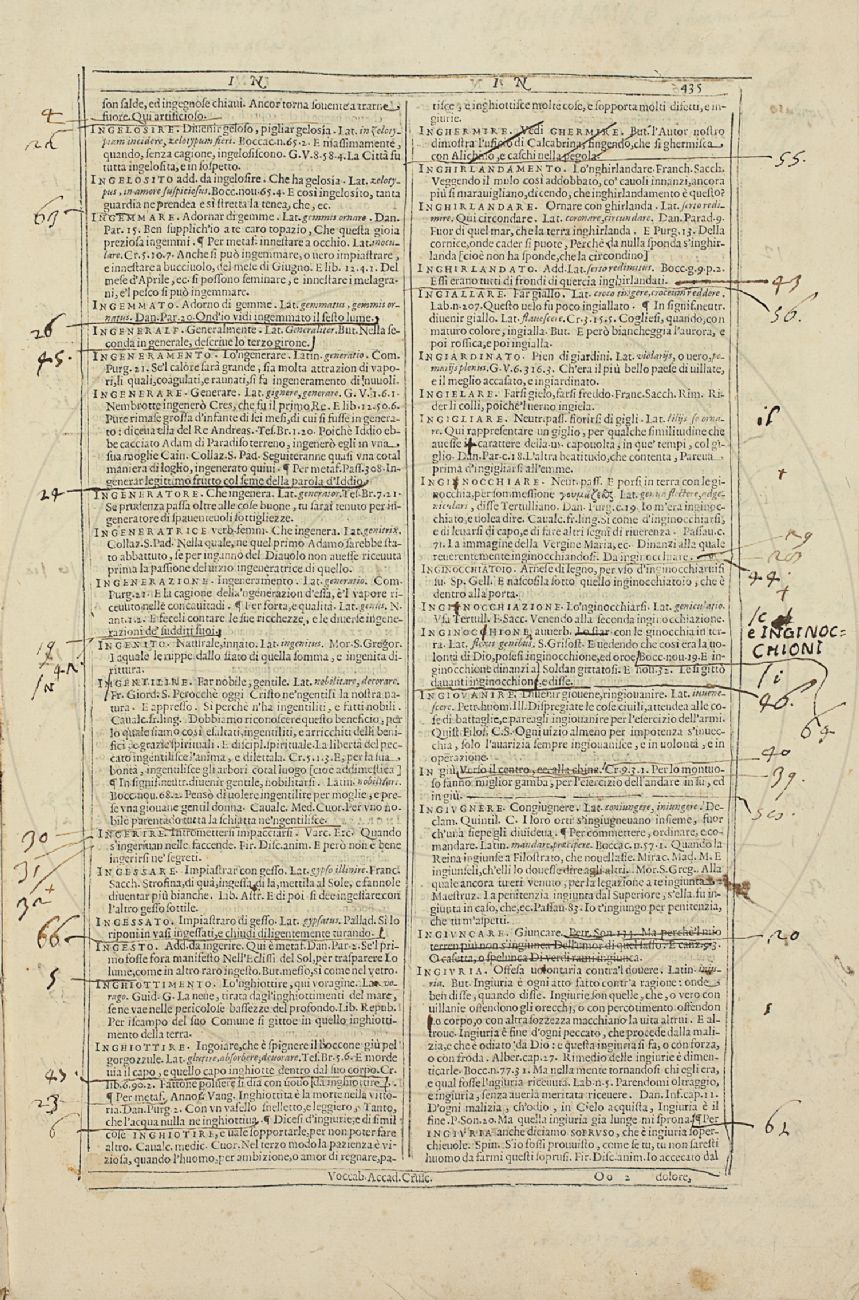 IN
IN
435
son salde, ed ingegnose chiaui. Ancor torna souente a trarne
fuore. Qui artificioso.
INGELOSIRE. Diuenir geloso, pigliar gelosia. Lat. in zelotypiam
incidere, zelotypum fieri. Boccac. n. 65. 2. E niassimamente,
quando, senza cagione, ingelosiscono. G.V. 8. 58. 4. La Città fu
tutta ingelosita, e in sospetto.
INGELOSITO add. da ingelosire. Che ha gelosia. Lat. zelotypus,
in amore suspitiosus. Bocc. nou. 65. 4. E così ingelosito, tanta
guardia ne prendea e sì stretta la tenea, che, ec.
INGEMMARE. Adornar di gemme. Lat. gemmis ornare. Dan.
Par. 15. Ben supplich'io a te caro topazio, Che questa gioia
preziosa ingemmi. ¶ Per metaf. innestare a occhio. Lat. inoculare.
Cr. 5. 10. 7. Anche si può ingemmare, o uero impiastrare,
e innestare a bucciuolo, del mese di Giugno. E lib. 12. 4. 1. Del
mese d'Aprile, ec. si possono seminare, e innestare i melagrani,
e'l pesco si può ingemmare.
INGEMMATO. Adorno di gemme. Lat. gemmatus, gemmis ornatus.
Dan. Par. 20. Ond'io vidi ingemmato il sesto lume.
INGENERALE. Generalmente. Lat. Generaliter. But. Nella seconda
in generale, descriue lo terzo girone.
INGENERAMENTO. Lo'ngenerare. Latin. generatio. Com.
Purg. 21. Se'l calore sarà grande, fia molta attrazion di vapori,
li quali, coagulati, e raunati, si fa ingeneramento di nuuoli.
INGENERARE. Generare. Lat. gignere, generare. G. V. 1. 6. 1.
Nembrotte ingenerò Cres, che fu il primo Re. E lib. 12. 50. 6.
Pure rimase grossa d'infante di sei mesi, di cui si fusse in genera-
to: diceua ella del Re Andreas. Tes. Br. 1. 20. Poichè Iddio ebbe
cacciato Adam di Paradiso terreno, ingenerò egli in vna
sua moglie Cain. Collaz. S. Pad. Seguiteranne quasi vna cotal
maniera di loglio, ingenerato quiui. ¶ Per metaf. Pass. 308. Ingenerar
legittimo frutto col seme della parola d'Iddio.
INGENERATORE. Che ingenera. Lat. generator. Tes. Br. 7. 21.
Se prudenza passa oltre alle cose buone, tu sarai tenuto per ingeneratore
di spauenteuoli sottigliezze.
INGENERATRICE verb. femm. Che ingenera. Lat. genitrix.
Collaz. S. Pad. Nella quale, ne quel primo Adamo sarebbe stato
abbattuto, se per inganno del Diauolo non auesse riceuuta
prima la passione del uizio ingeneratrice di quello.
INGENERAZIONE. Ingeneramento. Lat. generatio. Com.
Purg. 21. E la cagione della'ngenerazion d'essa, è'l vapore riceuuto
nelle concauitadi. ¶ Per sorta, e qualità. Lat. genus. N.
ant. 1. 2. E feceli contare le sue ricchezze, e le diuerse ingenerazioni
de' sudditi suoi.
INGENITO. Naturale, innato. Lat. ingenitus. Mor. S. Gregor.
INGENTILIRE. Far nobile, gentile. Lat. nobilitare, decorare.
Fr. Giord. S. Perocchè oggi Cristo ne'ngentilì la nostra natura.
E appresso. Sì perchè n'ha ingentiliti, e fatti nobili.
Caualc. fr. ling. Dobbiamo riconoscere questo beneficio, per
lo quale siamo così esaltati, ingentiliti, e arricchiti delli benifici,
e grazie spirituali. E discipl. spirituale. La libertà del peccato
ingentilisce l'anima, e dilettala. Cr. 5. 13. 3. E, per la sua
bontà, ingentilisce gli arbori cotal luogo [cioè addimestica]
¶ In signif. neutr. diuenir gentile, nobilitarsi. Latin. nobilitari.
Bocc. nou. 68. 2. Pensò di uolere ingentilire per moglie, e prese
vna giouane gentil donna. Caualc. Med. Cuor. Per vno nobile
parentado tutta la schiatta ne'ngentilisce.
INGERIRE. Intrommettersi impacciarsi. Varc. Erc. Quando
s'ingeriuan nelle faccende. Fir. Disc. anim. E però non è bene
ingerirsi ne' segreti.
INGESSARE. Impiastrar con gesso. Lat. gypso illinire. Franc.
Sacch. Strofina, di quà, ingessa, di là, mettila al Sole, e fannole
diuentar più bianche. Lib. Astr. E di poi si dee ingessare con
l'altro gesso sottile.
INGESSATO. Impiastraro di gesso. Lat. gypsatus. Pallad. Si lo
riponi in vasi ingessati, e chiudi diligentemente turando.
INGESTO. Add. da ingerire. Qui è metaf. Dan. Par. 2. Se'l primo
fosse fora manifesto Nell'Eclissi del Sol, per trasparere Lo
lume, come in altro raro ingesto. But. messo, sì come nel vetro.
INGHIOTTIMENTO. Lo'nghiottire, qui voragine. Lat. vorago.
Guid. G. La nene, tirata dagl'inghiottimenti del mare,
se ne vae nelle pericolose bassezze del profondo. Lib. Repub.
Per iscampo del suo Comune si gittoe in quello inghiottimento
della terra.
INGHIOTTIRE. Ingoiare, che è spignere il boccone giù pel
gorgozzule. Lat. glutire, absorbere, deuorare. Tes. Br. 5. 6. E morde
uia il capo, e quello capo inghiotte dentro dal suo corpo. Cr.
lib. 6. 90. 2. Fattone poluere si dia con uouo [da inghiottire].
¶ Per metaf. Annot. Vang. Inghiottita è la morte nella vittoria.
Dan. Purg. 2. Con vn vasello snelletto, e leggiero, Tanto,
che l'acqua nulla ne inghiottiua. ¶ Dicesi d'ingiurie, e di simil
cose INGHIOTTIRE, e uale sopportarle, per non poter fare
altro. Caualc. medic. Cuor. Nel terzo modo la pazienza è viziosa,
quando l'huomo, per ambizione, o amor di regnare, pa-
tisce, e inghiottisce molte cose, e sopporta molti difetti, e ingiurie.
INGHERMIRE. Vedi GHERMIRE. But. l'Autor nostro
dimostra l'uficio di Calcabrina, fingendo, che si ghermisca
con Alichino, e caschi nella pegola.
INGHIRLANDAMENTO. Lo'nghirlandare. Franch. Sacch.
Veggendo il mulo così addobbato, co' cauoli innanzi, ancora
più si marauigliano, dicendo, che inghirlandamento è questo?
INGHIRLANDARE. Ornare con ghirlanda. Lat. serto redimire.
Qui circondare. Lat. coronare, circundare. Dan. Parad. 9.
Fuor di quel mar, che la terra inghirlanda. E Purg. 13. Della
cornice, onde cader si puote, Perchè da nulla sponda s'inghirlanda
[cioè non ha sponde, che la circondino]
INGHIRLANDATO. Add. Lat. serto redimitus. Bocc. g. 9. p. 2.
Essi erano tutti di frondi di quercia inghirlandati.
INGIALLARE. Far giallo. Lat. croco tingere, croceum reddere.
Lab. n. 207. Questo uelo fu poco ingiallato. ¶ In signif. neutr.
diuenir giallo. Lat. flauescere. Cr. 3. 15. 5. Cogliesi, quando, con
maturo colore, ingialla. But. E però biancheggia l'aurora, e
poi rossica, e poi ingialla.
INGIARDINATO. Pien di giardini. Lat. violarijs, o uero, pomarijs
plenus. G. V. 6. 316. 3. Ch'era il più bello paese di uillate,
e il meglio accasato, e ingiardinato.
INGIELARE. Farsi gielo, farsi freddo. Franc. Sacch. Rim. Rider
li colli, poichè'l uerno ingiela.
INGIGLIARE. Neutr. pass. fiorirsi di gigli. Lat. lilijs se ornare.
Qui rappresentare un giglio, per qualche similitudine che
auesse il carattere della m. capouolta, in que' tempi, col giglio.
Dan. Par. c. 18. L'altra beatitudo, che contenta, Pareua
prima d'ingigliarsi all'emme.
INGINOCCHIARE. Neut. pass. E porsi in terra con le ginocchia,
per sommessione Lat. genua flectere, adgeniculari,
disse Tertulliano. Dan. Purg. c. 19. Io m'era inginocchiato,
e uolea dire. Caualc. fr. ling. Si come d'inginocchiarsi,
e di leuarsi di capo, e di fare altri segni di riuerenza. Passau. c.
71. La immagine della Vergine Maria, ec. Dinanzi alla quale
reuerentemente inginocchiandosi. Da inginocchiare.
INGINOCCHIATOIO. Arnese di legno, per vso d'inginocchiaruisi
su. Sp. Gell. E nascosila sotto quello inginocchiatoio, che è
dentro alla porta.
INGINOCCHIAZIONE. Lo'nginocchiarsi. Lat. geniculatio.
Vsa Tertull. E Sacc. Venendo alla seconda inginocchiazione.
INGINOCCHIONE, auuerb. Lo star con le ginocchia in terra.
Lat. flexis genibus. S. Grisost. E uedendo che così era la uolontà
di Dio, posesi inginocchione, ed orò. Bocc. nou. 19. E inginocchione
dinanzi al Soldan gittatosi. E nou. 32. Le si gittò
dauanti inginocchione, e disse.
INGIOVANIRE. Diuenir giouane, ringiouanire. Lat. iuuenescere.
Petr. huom. Ill. Dispregiate le cose ciuili, attendea alle cose
di battaglie, e pareagli ingiouanire per l'esercizio dell'armi.
Quist. Filos. C. S. Ogni uizio almeno per impotenza s'inuecchia,
solo l'auarizia sempre ingiouanisce, e in uolontà, e in
operazione.
IN giù. Verso il centro, ec. alla china. Cr. 9. 3. 1. Per lo montuoso
fanno miglior gamba, per l'esercizio dell'andare in su, ed
in giù.
INGIVGNERE. Congiugnere. Lat. coniungere, iniungere. Declam.
Quintil. C. I loro orti s'ingiugneuano insieme, fuor
ch'una siepe gli diuidena. ¶ Per commettere, ordinare, e comandare.
Latin. mandare, præcipere. Boccac. n. 57. 1. Quando la
Reina ingiunse a Filostrato, che nouellasse. Mirac. Mad. M. E
ingiunseli, ch'elli lo douesse dire agli altri. Mor. S. Greg. Alla
quale ancora tu eri venuto, per la legazione a te ingiunta
Maestruz. La penitenzia ingiunta dal Superiore, s'ella fu ingiunta
in caso, che, ec. Passau. 83. Io t'ingiungo per penitenzia,
che tu m'aspetti.
INGIVNCARE. Giuncare. Petr. Son. 133. Ma perchè'l mio
terren più non s'ingiunca Dell'umor di quel sasso. E canz. 9. 3.
O casetta, o spelunca Di verdi rami ingiunca.
INGIVRIA. Offesa uolontaria contra'l douere. Latin. iniuria.
But. Ingiuria è ogni atto fatto contr'a ragione: onde
ben disse, quando disse. Ingiurie son quelle, che, o vero con
uillanie offendono gli orecchi, o con percotimento offendon
lo corpo, o con altra sozzezza macchiano la uita altrui. E altroue.
Ingiuria è fine d'ogni peccato, che procede dalla malizia,
e che è odiato da Dio: e questa ingiuria si fa, o con forza,
o con froda. Alber. cap. 27. Rimedio delle ingiurie è dimenticarle.
Bocc. n. 77. 31. Ma nella mente tornandosi chi egli era,
e qual fosse l'ingiuria riceuuta. Lab. n. 5. Parendomi oltraggio,
e ingiuria, senza auerla meritata riceuere. Dan. Inf. cap. 11.
D'ogni malizia, ch'odio, in Cielo acquista, Ingiuria è il
fine. P. Son. 20. Ma quella ingiuria già lunge mi sprona. ¶ Per
INGIVRIA anche diciamo SOPRVSO, che è ingiuria superchieuole.
Spin. S'io fossi prouaisto, come se tu, tu non faresti
huomo da farmi questi soprusi. Fir. Disc. anim. Io accecato dal
Vocab. Accad. Crusc.
Oo 2
dolore,
4
26
69
26
45.
24
19
30
31
32
66
5
43
23
6
55.
43
56.
44
e INGINOC=
CHIONI
46.
64
40
39.
20
1
62